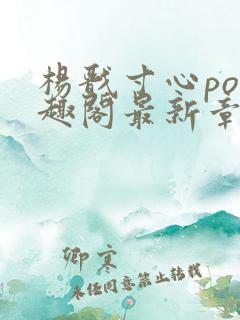 楊戩寸心po
趣閣最新章
卿寒
未经同意禁止转载